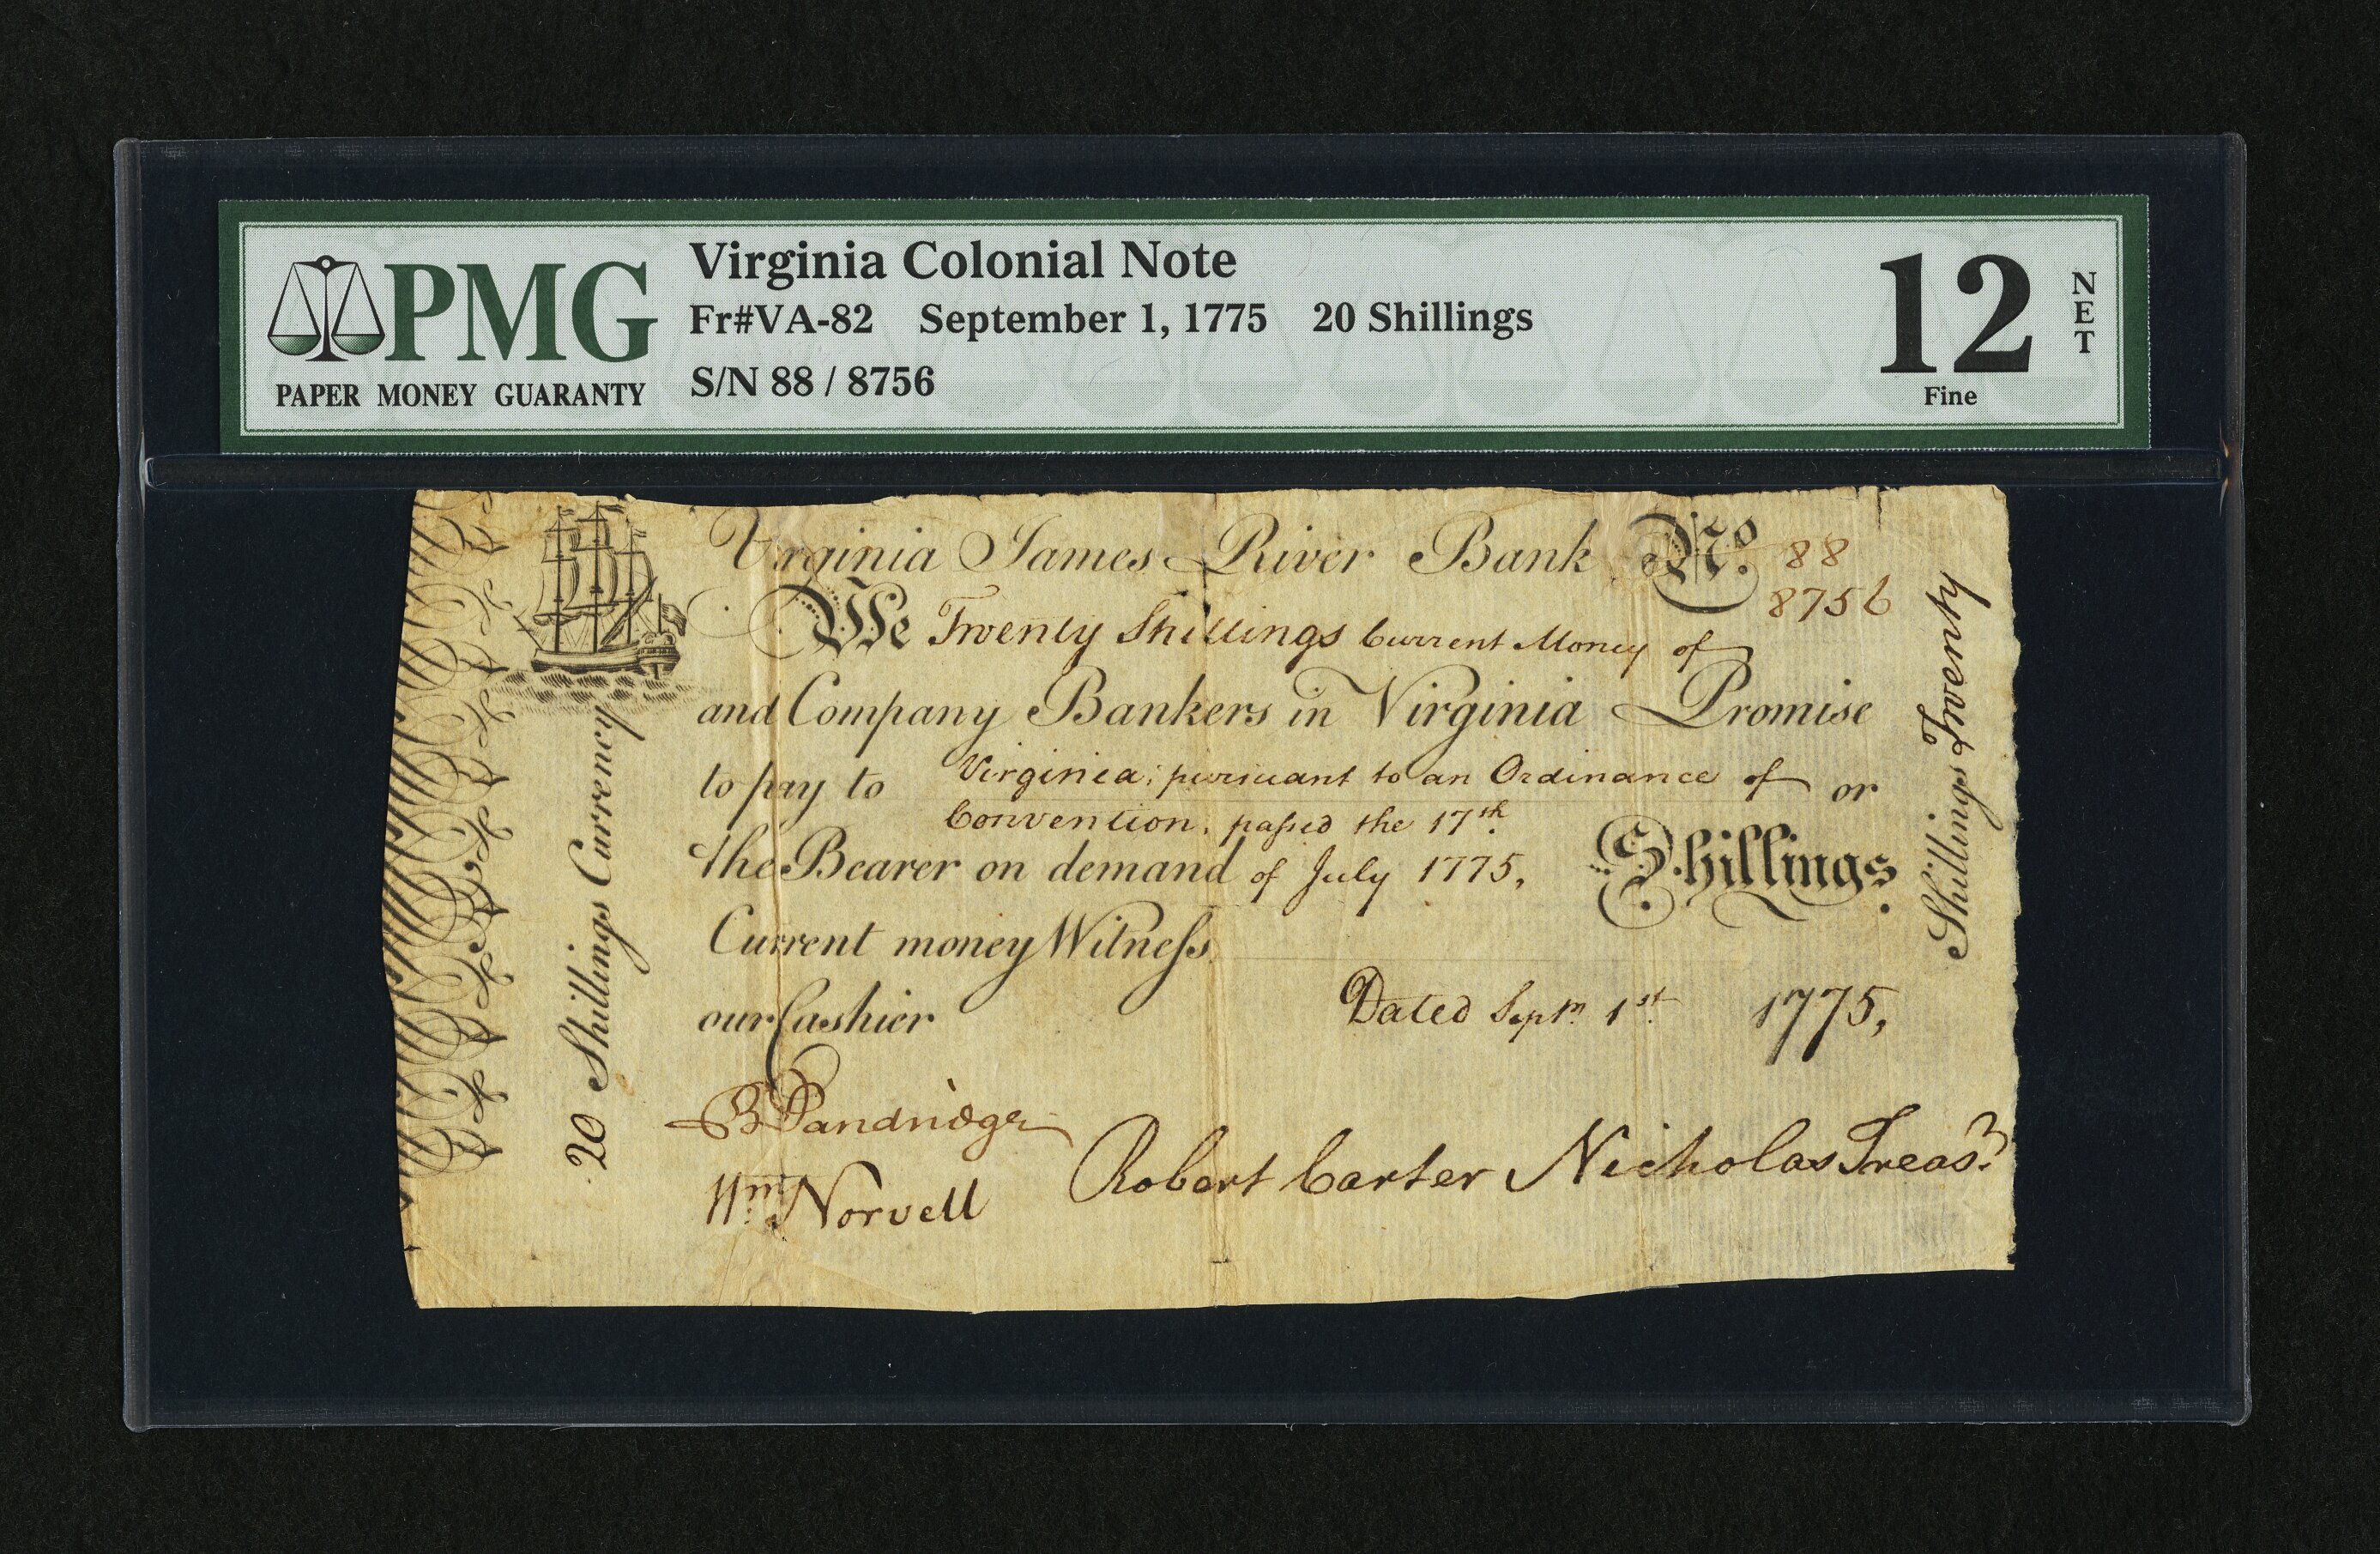 PMG
PAPER MONEY GUARANTY
Virginia Colonial Note
Fr#VA-82 September 1, 1775 20 Shillings
S/N 88 / 8756
12
NET
Fine
Virginia James River Bank No. 88
8756
We Twenty Shillings Current Money of
and Company Bankers in Virginia Promise
to pay to Virginia; pursuant to an Ordinance of or
Convention, paſsed the 17th
the Bearer on demand of July 1775, Shillings.
Current money Witneſs
our Cashier Dated Sepm. 1st. 1775,
B Dandridge
Wm. Norvell
Robert Carter Nicholas Treasr.
20 Shillings Currency
Shillings Twenty